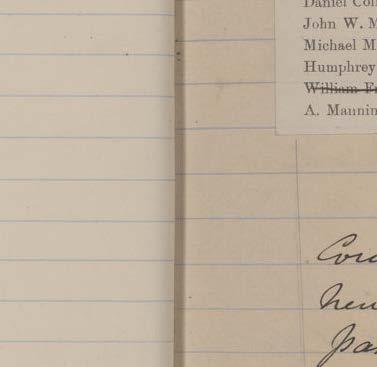 Daniel Coh
John W. M
Michael M
Humphrey
William Fr
A. Mannin
Cord
new
pa